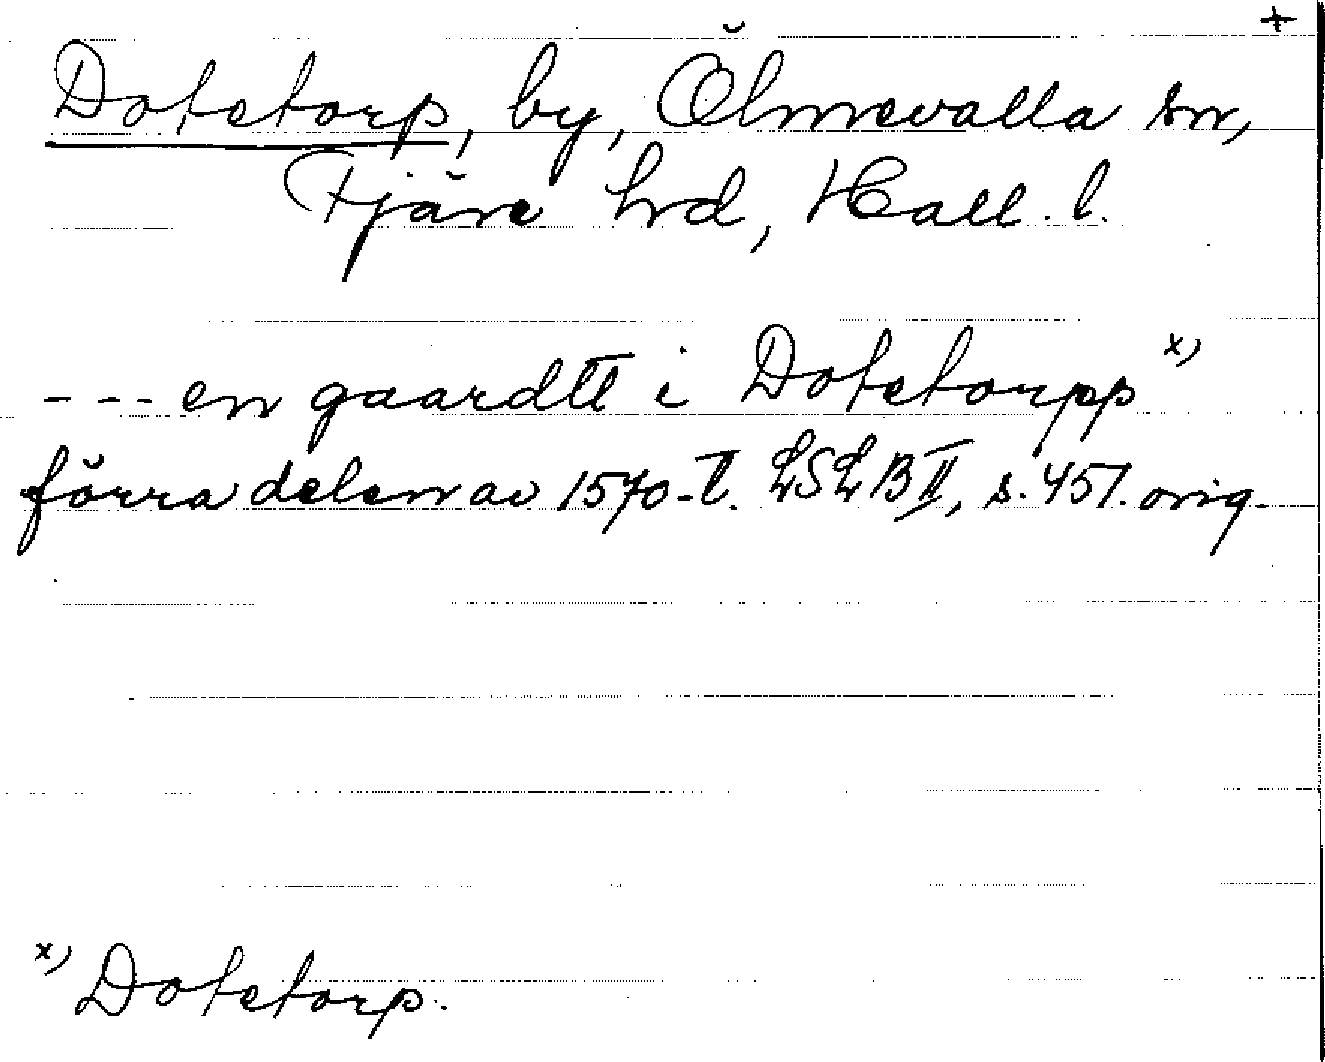 +
Dotetorp, by, Ölmevalla sn,
Fjäre hrd, Hall. l.
--- en gaardtt i Dotetorpp x)
förra delen av 1570-t. LSLB II, s. 457. orig.
x) Dotetorp.